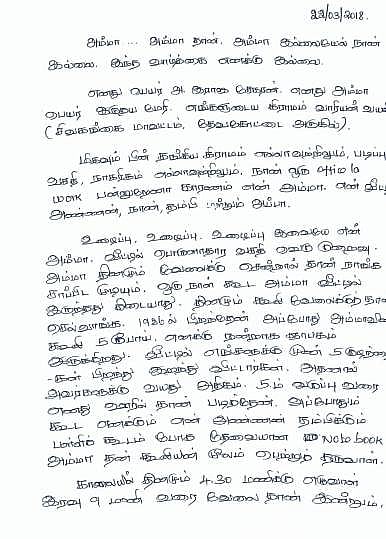 22/03/2018.
அம்மா ... அம்மா தான். அம்மா இல்லையேல் நான்
இல்லை. இந்த வாழ்க்கை எனக்கு இல்லை.
எனது பெயர் அ. எனது அம்மா
பெயர் மேரி. எங்களுடைய கிராமம் வாரியன் வயல்
(சிவகங்கை மாவட்டம், தேவகோட்டை அருகில்).
மிகவும் பின் தங்கிய கிராமம் எல்லாவற்றிலும், படிப்பு
வசதி, நாகரிகம் எல்லாவற்றிலும். நான் ஒரு
work காரணம் என் அம்மா. என்
அண்ணன், நான், தம்பி மற்றும் அப்பா.
உழைப்பு, உழைப்பு, உழைப்பு இவையே என்
அம்மா. வீட்டில் பொருளாதார வசதி
அம்மா தினமும் வேலைக்கு சென்றால் தான் நாங்க
சாப்பிட முடியும். ஒரு நாள் கூட அம்மா வீட்டில்
இருந்தது கிடையாது. தினமும் கூலி வேலைக்கு தான்
செல்வாங்க. பிறந்தேன் அப்போது அம்மாவின்
கூலி 5 ரூபாய். எனக்கு நன்றாக ஞாபகம்
இருக்கிறது. வீட்டில் எங்களுக்கு முன் 5 குழந்தை
-கள் பிறந்து இறந்து விட்டார்கள். அதனால்
அவர்களுக்கு வயது அதிகம். 5.ம் வகுப்பு வரை
எனது ஊரில் தான் படித்தேன். அப்போதும்
கூட எனக்கும் என் அண்ணன் தம்பிக்கும்
பள்ளி கூடம் போக தேவையான Note book
அம்மா தன் கூலியின் மூலம் தருவாள்.
காலையில் தினமும் 4.30 மணிக்கு எழுவாள்
இரவு 9 மணி வரை வேலை தான்